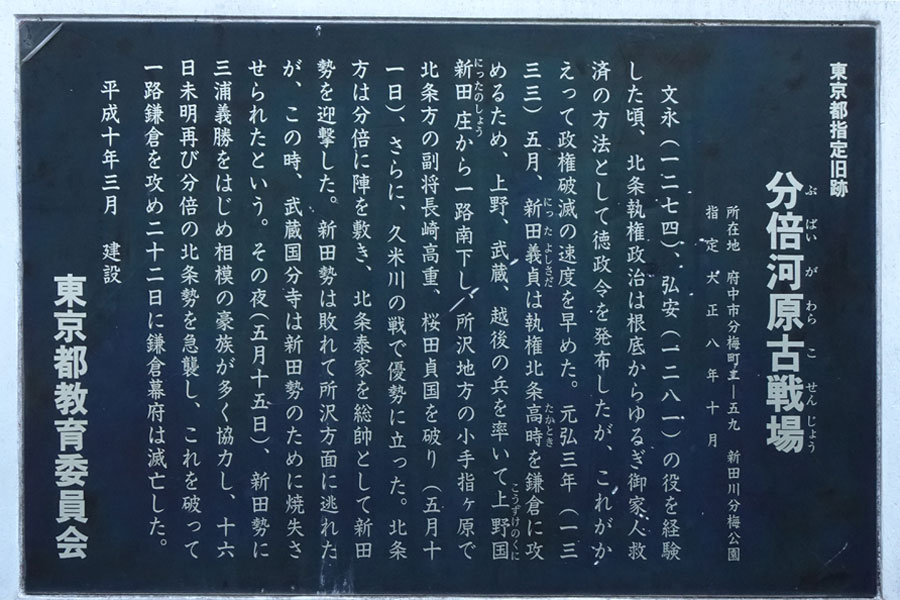 東京都指定旧跡
分倍河原古戦場
ぶばいがわらこせんじょう
所在地 府中市分梅町 新田川分梅公園
指定 大正八年十月
文永(一二七四)、弘安(一二八一)の役を経験
した頃、北条執権政治は根底からゆるぎ御家人救
済の方法として徳政令を発布したが、これがか
えって政権破滅の速度を早めた。元弘三年(一三
三三)五月、新田義貞は執権北条高時を鎌倉に攻
にったよしさだ
たかとき
めるため、上野、武蔵、越後の兵を率いて上野国
こうずけのくに
新田庄から一路南下し、所沢地方の小手指ヶ原で
にったのしょう
北条方の副将長崎高重、桜田貞国を破り(五月十
一日)、さらに、久米川の戦で優勢に立った。北条
方は分倍に陣を敷き、北条泰家を総帥として新田
勢を迎撃した。新田勢は敗れて所沢方面に逃れた
が、この時、武蔵国分寺は新田勢のために焼失さ
せられたという。その夜(五月十五日)、新田勢に
三浦義勝をはじめ相模の豪族が多く協力し、十六
日未明再び分倍の北条勢を急襲し、これを破って
一路鎌倉を攻め二十二日に鎌倉幕府は滅亡した。
平成十年三月 建設
東京都教育委員会